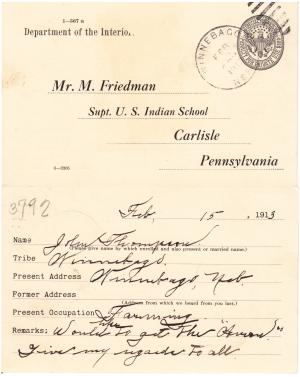 1-567 a
Department of the Interior.
WINNEBAGO
FEB
NEB
Mr. M. Friedman
Supt. U. S. Indian School
Carlisle
Pennsylvania
3792
Feb. 15, 1913
Name John Thompson
(Please give name by which enrolled and also present or married name.)
Tribe Winnebago.
Present Address Winnebago, Neb.
Former Address
(Address from which we heard from you last.)
Present Occupation Farming
Remarks: Would like to get the "Arrow"
Give my regards to all